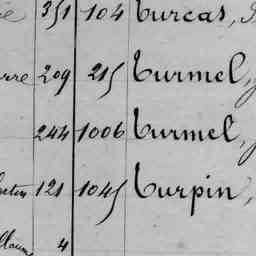 351 104 Turcas,
209 215 Turmel,
244 1006 Turmel,
121 1045 Turpin,
4